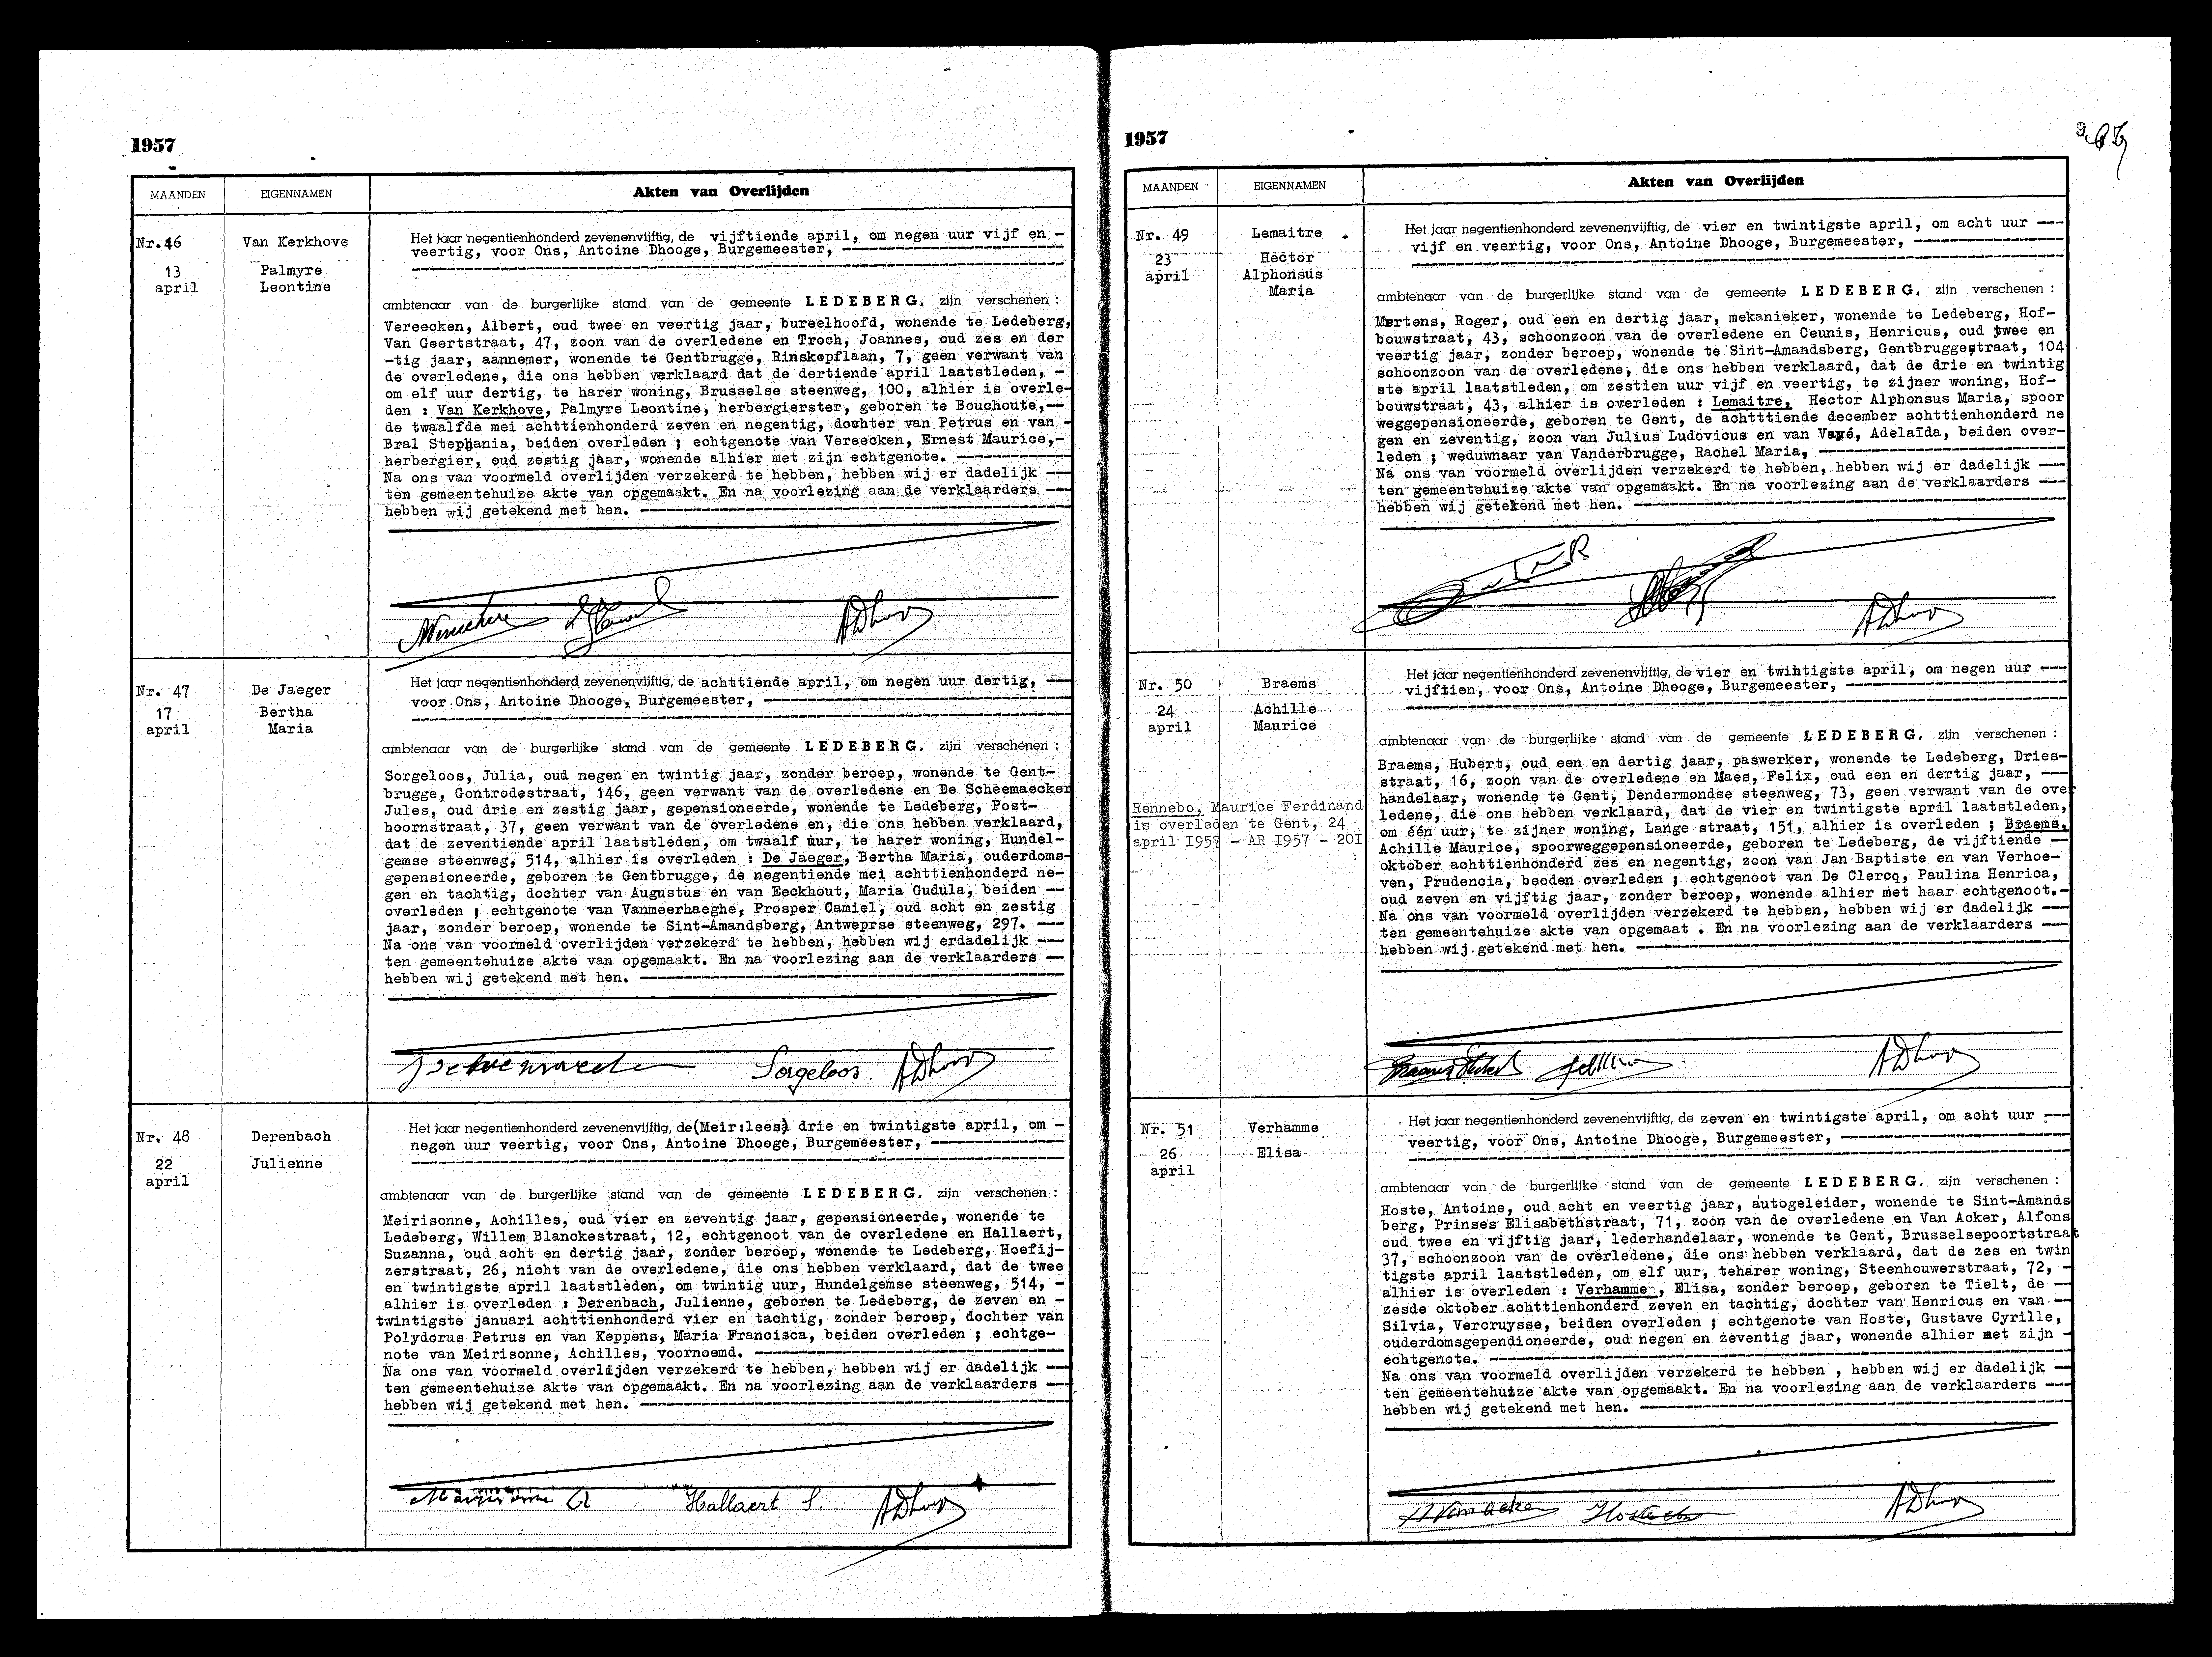 1957
MAANDEN
EIGENNAMEN
Akten van Overlijden
Nr.46
Van Kerkhove
13
april
Palmyre
Leontine
Het jaar negentienhonderd zevenenvijftig, de vijftiende april, om negen uur vijf en -
veertig, voor Ons, Antoine Dhooge, Burgemeester,
ambtenaar van de burgerlijke stand van de gemeente LEDEBERG, zijn verschenen :
Vereecken, Albert, oud twee en veertig jaar, bureelhoofd, wonende te Ledeberg,
Van Geertstraat, 47, zoon van de overledene en Troch, Joannes, oud zes en der
-tig jaar, aannemer, wonende te Gentbrugge, Rinskopflaan, 7, geen verwant van
de overledene, die ons hebben verklaard dat de dertiende april laatstleden, -
om elf uur dertig, te harer woning, Brusselse steenweg, 100, alhier is overle-
den : Van Kerkhove, Palmyre Leontine, herbergierster, geboren te Bouchoute,--
de twaalfde mei achttienhonderd zeven en negentig, dochter van Petrus en van -
Bral Stephania, beiden overleden ; echtgenote van Vereecken, Ernest Maurice,-
herbergier, oud zestig jaar, wonende alhier met zijn echtgenote.
Na ons van voormeld overlijden verzekerd te hebben, hebben wij er dadelijk
ten gemeentehuize akte van opgemaakt. En na voorlezing aan de verklaarders
hebben wij getekend met hen.
ADhooge
Nr. 47
De Jaeger
17
april
Bertha
Maria
Het jaar negentienhonderd zevenenvijftig, de achttiende april, om negen uur dertig,
voor Ons, Antoine Dhooge, Burgemeester,
ambtenaar van de burgerlijke stand van de gemeente LEDEBERG, zijn verschenen :
Sorgeloos, Julia, oud negen en twintig jaar, zonder beroep, wonende te Gent-
brugge, Gontrodestraat, 146, geen verwant van de overledene en De Scheemaecker
Jules, oud drie en zestig jaar, gepensioneerde, wonende te Ledeberg, Post-
hoornstraat, 37, geen verwant van de overledene en, die ons hebben verklaard,
dat de zeventiende april laatstleden, om twaalf uur, te harer woning, Hundel-
gemse steenweg, 514, alhier is overleden : De Jaeger, Bertha Maria, ouderdoms-
gepensioneerde, geboren te Gentbrugge, de negentiende mei achttienhonderd ne-
gen en tachtig, dochter van Augustus en van Eeckhout, Maria Gudula, beiden --
overleden ; echtgenote van Vanmeerhaeghe, Prosper Camiel, oud acht en zestig
jaar, zonder beroep, wonende te Sint-Amandsberg, Antweprse steenweg, 297.
Na ons van voormeld overlijden verzekerd te hebben, hebben wij erdadelijk
ten gemeentehuize akte van opgemaakt. En na voorlezing aan de verklaarders
hebben wij getekend met hen.
Sorgeloos. ADhooge
Nr. 48
Derenbach
22
april
Julienne
Het jaar negentienhonderd zevenenvijftig, de (Meir:lees) drie en twintigste april, om -
negen uur veertig, voor Ons, Antoine Dhooge, Burgemeester,
ambtenaar van de burgerlijke stand van de gemeente LEDEBERG, zijn verschenen :
Meirisonne, Achilles, oud vier en zeventig jaar, gepensioneerde, wonende te
Ledeberg, Willem Blanckestraat, 12, echtgenoot van de overledene en Hallaert,
Suzanna, oud acht en dertig jaar, zonder beroep, wonende te Ledeberg, Hoefij-
zerstraat, 26, nicht van de overledene, die ons hebben verklaard, dat de twee
en twintigste april laatstleden, om twintig uur, Hundelgemse steenweg, 514, -
alhier is overleden : Derenbach, Julienne, geboren te Ledeberg, de zeven en -
twintigste januari achttienhonderd vier en tachtig, zonder beroep, dochter van
Polydorus Petrus en van Keppens, Maria Francisca, beiden overleden ; echtge-
note van Meirisonne, Achilles, voornoemd.
Na ons van voormeld overlijden verzekerd te hebben, hebben wij er dadelijk
ten gemeentehuize akte van opgemaakt. En na voorlezing aan de verklaarders
hebben wij getekend met hen.
Meirisonne A Hallaert S. ADhooge
1957
MAANDEN
EIGENNAMEN
Akten van Overlijden
Nr. 49
Lemaitre
23
april
Hector
Alphonsus
Maria
Het jaar negentienhonderd zevenenvijftig, de vier en twintigste april, om acht uur
vijf en veertig, voor Ons, Antoine Dhooge, Burgemeester,
ambtenaar van de burgerlijke stand van de gemeente LEDEBERG, zijn verschenen :
Mertens, Roger, oud een en dertig jaar, mekanieker, wonende te Ledeberg, Hof-
bouwstraat, 43, schoonzoon van de overledene en Ceunis, Henricus, oud twee en
veertig jaar, zonder beroep, wonende te Sint-Amandsberg, Gentbruggestraat, 104
schoonzoon van de overledene, die ons hebben verklaard, dat de drie en twintig
ste april laatstleden, om zestien uur vijf en veertig, te zijner woning, Hof-
bouwstraat, 43, alhier is overleden : Lemaitre, Hector Alphonsus Maria, spoor
weggepensioneerde, geboren te Gent, de achtttiende december achttienhonderd ne
gen en zeventig, zoon van Julius Ludovicus en van Vayé, Adelaïda, beiden over-
leden ; weduwnaar van Vanderbrugge, Rachel Maria,
Na ons van voormeld overlijden verzekerd te hebben, hebben wij er dadelijk
ten gemeentehuize akte van opgemaakt. En na voorlezing aan de verklaarders
hebben wij getekend met hen.
ADhooge
Nr. 50
Braems
24
april
Achille
Maurice
Rennebo, Maurice Ferdinand
is overleden te Gent, 24
april I957 - AR I957 - 20I
Het jaar negentienhonderd zevenenvijftig, de vier en twintigste april, om negen uur
vijftien, voor Ons, Antoine Dhooge, Burgemeester,
ambtenaar van de burgerlijke stand van de gemeente LEDEBERG, zijn verschenen :
Braems, Hubert, oud een en dertig jaar, paswerker, wonende te Ledeberg, Dries-
straat, 16, zoon van de overledene en Maes, Felix, oud een en dertig jaar,
handelaar, wonende te Gent, Dendermondse steenweg, 73, geen verwant van de over
ledene, die ons hebben verklaard, dat de vier en twintigste april laatstleden,
om één uur, te zijner woning, Lange straat, 151, alhier is overleden ; Braems,
Achille Maurice, spoorweggepensioneerde, geboren te Ledeberg, de vijftiende --
oktober achttienhonderd zes en negentig, zoon van Jan Baptiste en van Verhoe-
ven, Prudencia, beoden overleden ; echtgenoot van De Clercq, Paulina Henrica,
oud zeven en vijftig jaar, zonder beroep, wonende alhier met haar echtgenoot.-
Na ons van voormeld overlijden verzekerd te hebben, hebben wij er dadelijk
ten gemeentehuize akte van opgemaat . En na voorlezing aan de verklaarders
hebben wij getekend met hen.
ADhooge
Nr. 51
Verhamme
26
april
Elisa
Het jaar negentienhonderd zevenenvijftig, de zeven en twintigste april, om acht uur
veertig, voor Ons, Antoine Dhooge, Burgemeester,
ambtenaar van de burgerlijke stand van de gemeente LEDEBERG, zijn verschenen :
Hoste, Antoine, oud acht en veertig jaar, autogeleider, wonende te Sint-Amands
berg, Prinses Elisabethstraat, 71, zoon van de overledene en Van Acker, Alfons
oud twee en vijftig jaar, lederhandelaar, wonende te Gent, Brusselsepoortstraat
37, schoonzoon van de overledene, die ons hebben verklaard, dat de zes en twin
tigste april laatstleden, om elf uur, teharer woning, Steenhouwerstraat, 72, -
alhier is overleden : Verhamme, Elisa, zonder beroep, geboren te Tielt, de --
zesde oktober achttienhonderd zeven en tachtig, dochter van Henricus en van --
Silvia, Vercruysse, beiden overleden ; echtgenote van Hoste, Gustave Cyrille,
ouderdomsgependioneerde, oud negen en zeventig jaar, wonende alhier met zijn -
echtgenote.
Na ons van voormeld overlijden verzekerd te hebben , hebben wij er dadelijk
ten gemeentehuize akte van opgemaakt. En na voorlezing aan de verklaarders
hebben wij getekend met hen.
ADhooge